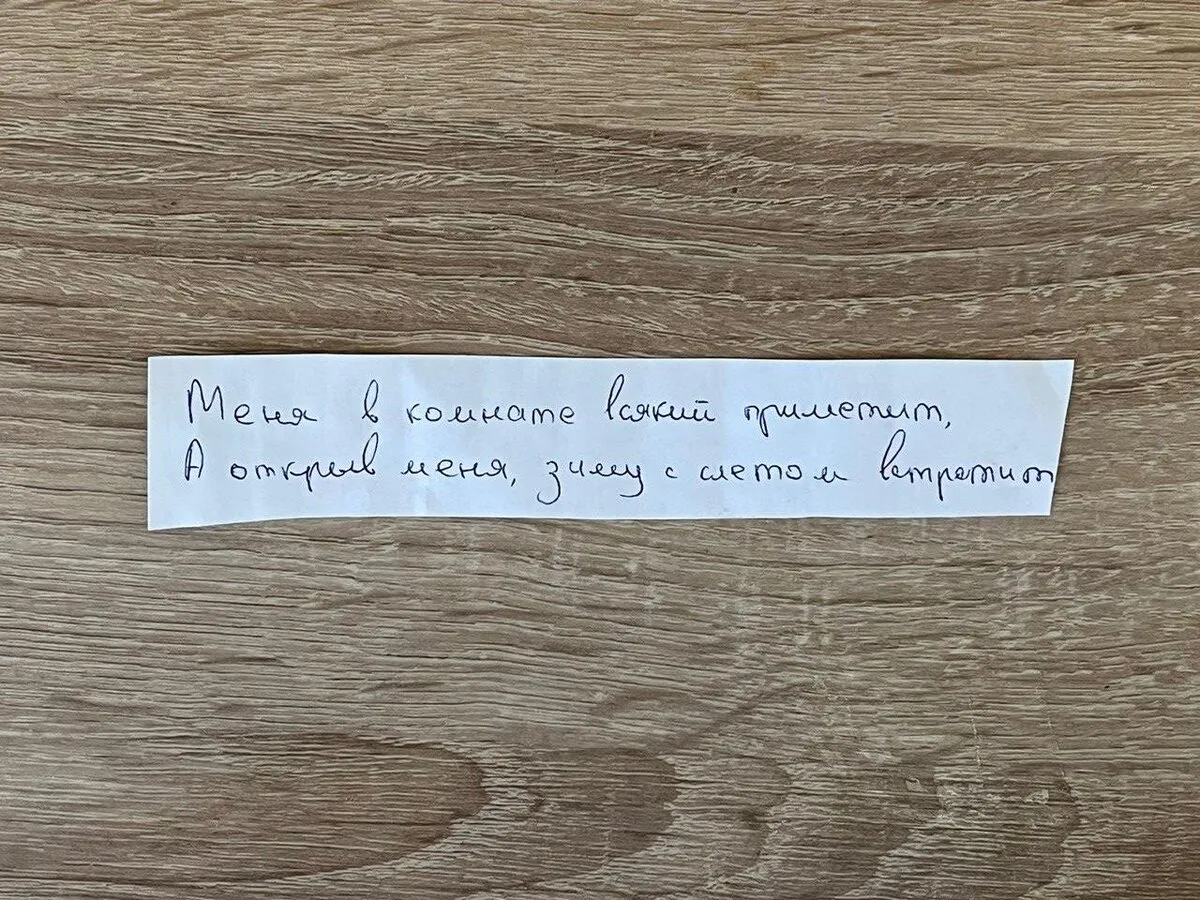 Меня в комнате всякий приметит,
А открыв меня, зиму с летом встретит